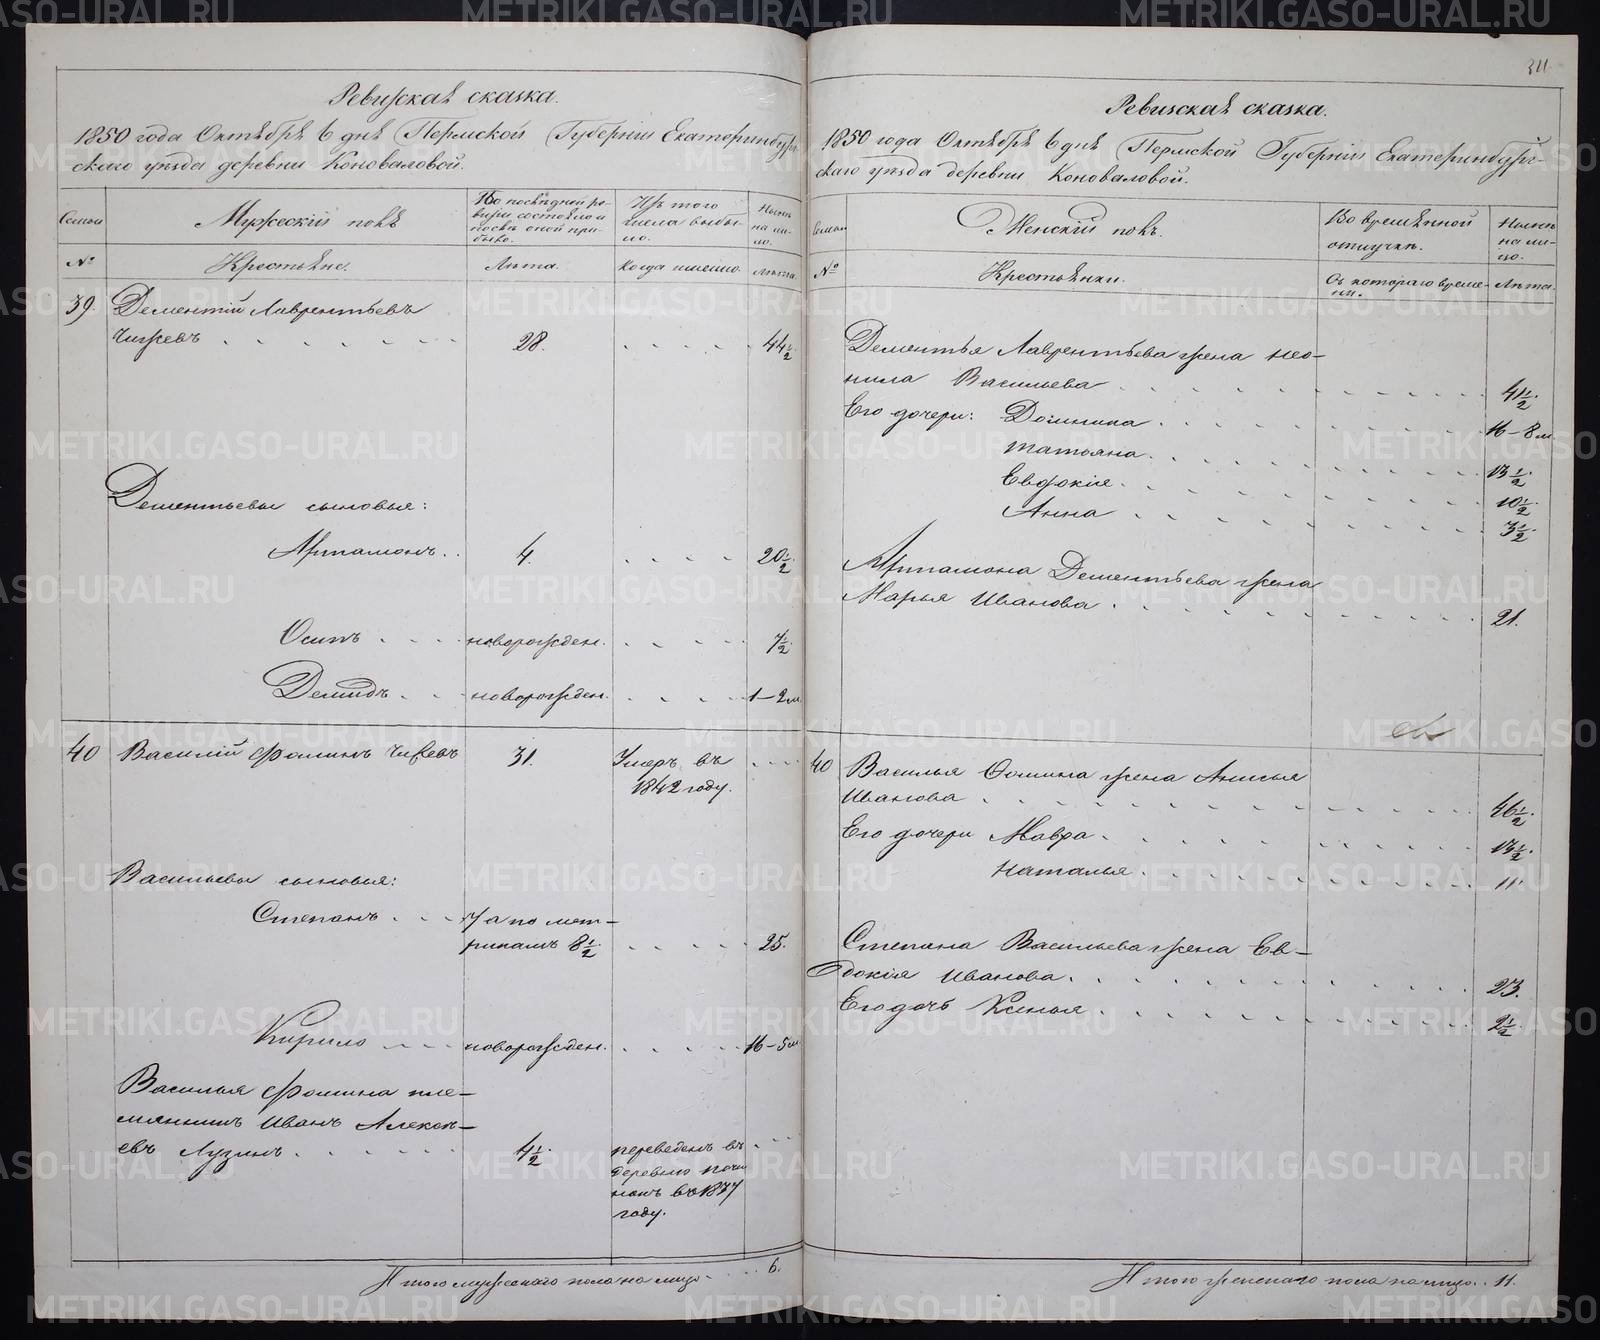 Ревизская сказка.
1850 года Октября 6 дня Пермской Губернiи Екатеринбург-
скаго уѣзда деревни Коноваловой.
Семьи
Мужескiй полъ
По послѣдней ре-
визiи состояло и
послѣ оной при-
было.
Изъ того
числа выбы-
ло.
Нынѣ
на ли-
цо.
№
Крестьяне.
Лѣта.
Когда именно.
Лѣта.
39. Дементiй Лаврентьевъ
Чижевъ 28. 44½
Дементьевы сыновья:
Артамонъ 4. 20½
Осипъ новорожден. 7½
Демидъ новорожден. 1–2 м
40 Василiй Фоминъ Чижевъ 31. Умеръ въ
1842 году.
Васильевы сыновья:
Степанъ 7 а по мет-
рикамъ 8½ 25.
Кирило новорожден. 16–5 м
Василья Фомина пле-
мянникъ Иванъ Алексѣ-
евъ Лузинъ 4½ переведенъ въ
деревню Почи
нокъ въ 1837
году.
Итого мужескаго пола на лицо 6.
311
Ревизская сказка.
1850 года Октября 6 дня Пермской Губернiи Екатеринбург-
скаго уѣзда деревни Коноваловой.
Семьи
Женскiй полъ.
Во временной
отлучкѣ.
Нынѣ
на ли-
цо.
№
Крестьянки.
Съ котораго време-
ни.
Лѣта.
Дементья Лаврентьева жена Нео-
нила Васильева 41½
Его дочери: Домника 16–8 м
Татьяна 13½
Евдокiя 10½
Анна 3½
Артамона Дементьева жена
Марья Иванова 21.
40 Василья Фомина жена Анисья
Иванова 46½
Его дочери Мавра 13½
Наталья 11
Степана Васильева жена Ев-
докiя Иванова 23.
Его дочь Ксенья 2½
Итого женскаго пола на лицо 11.
METRIKI.GASO-URAL.RU